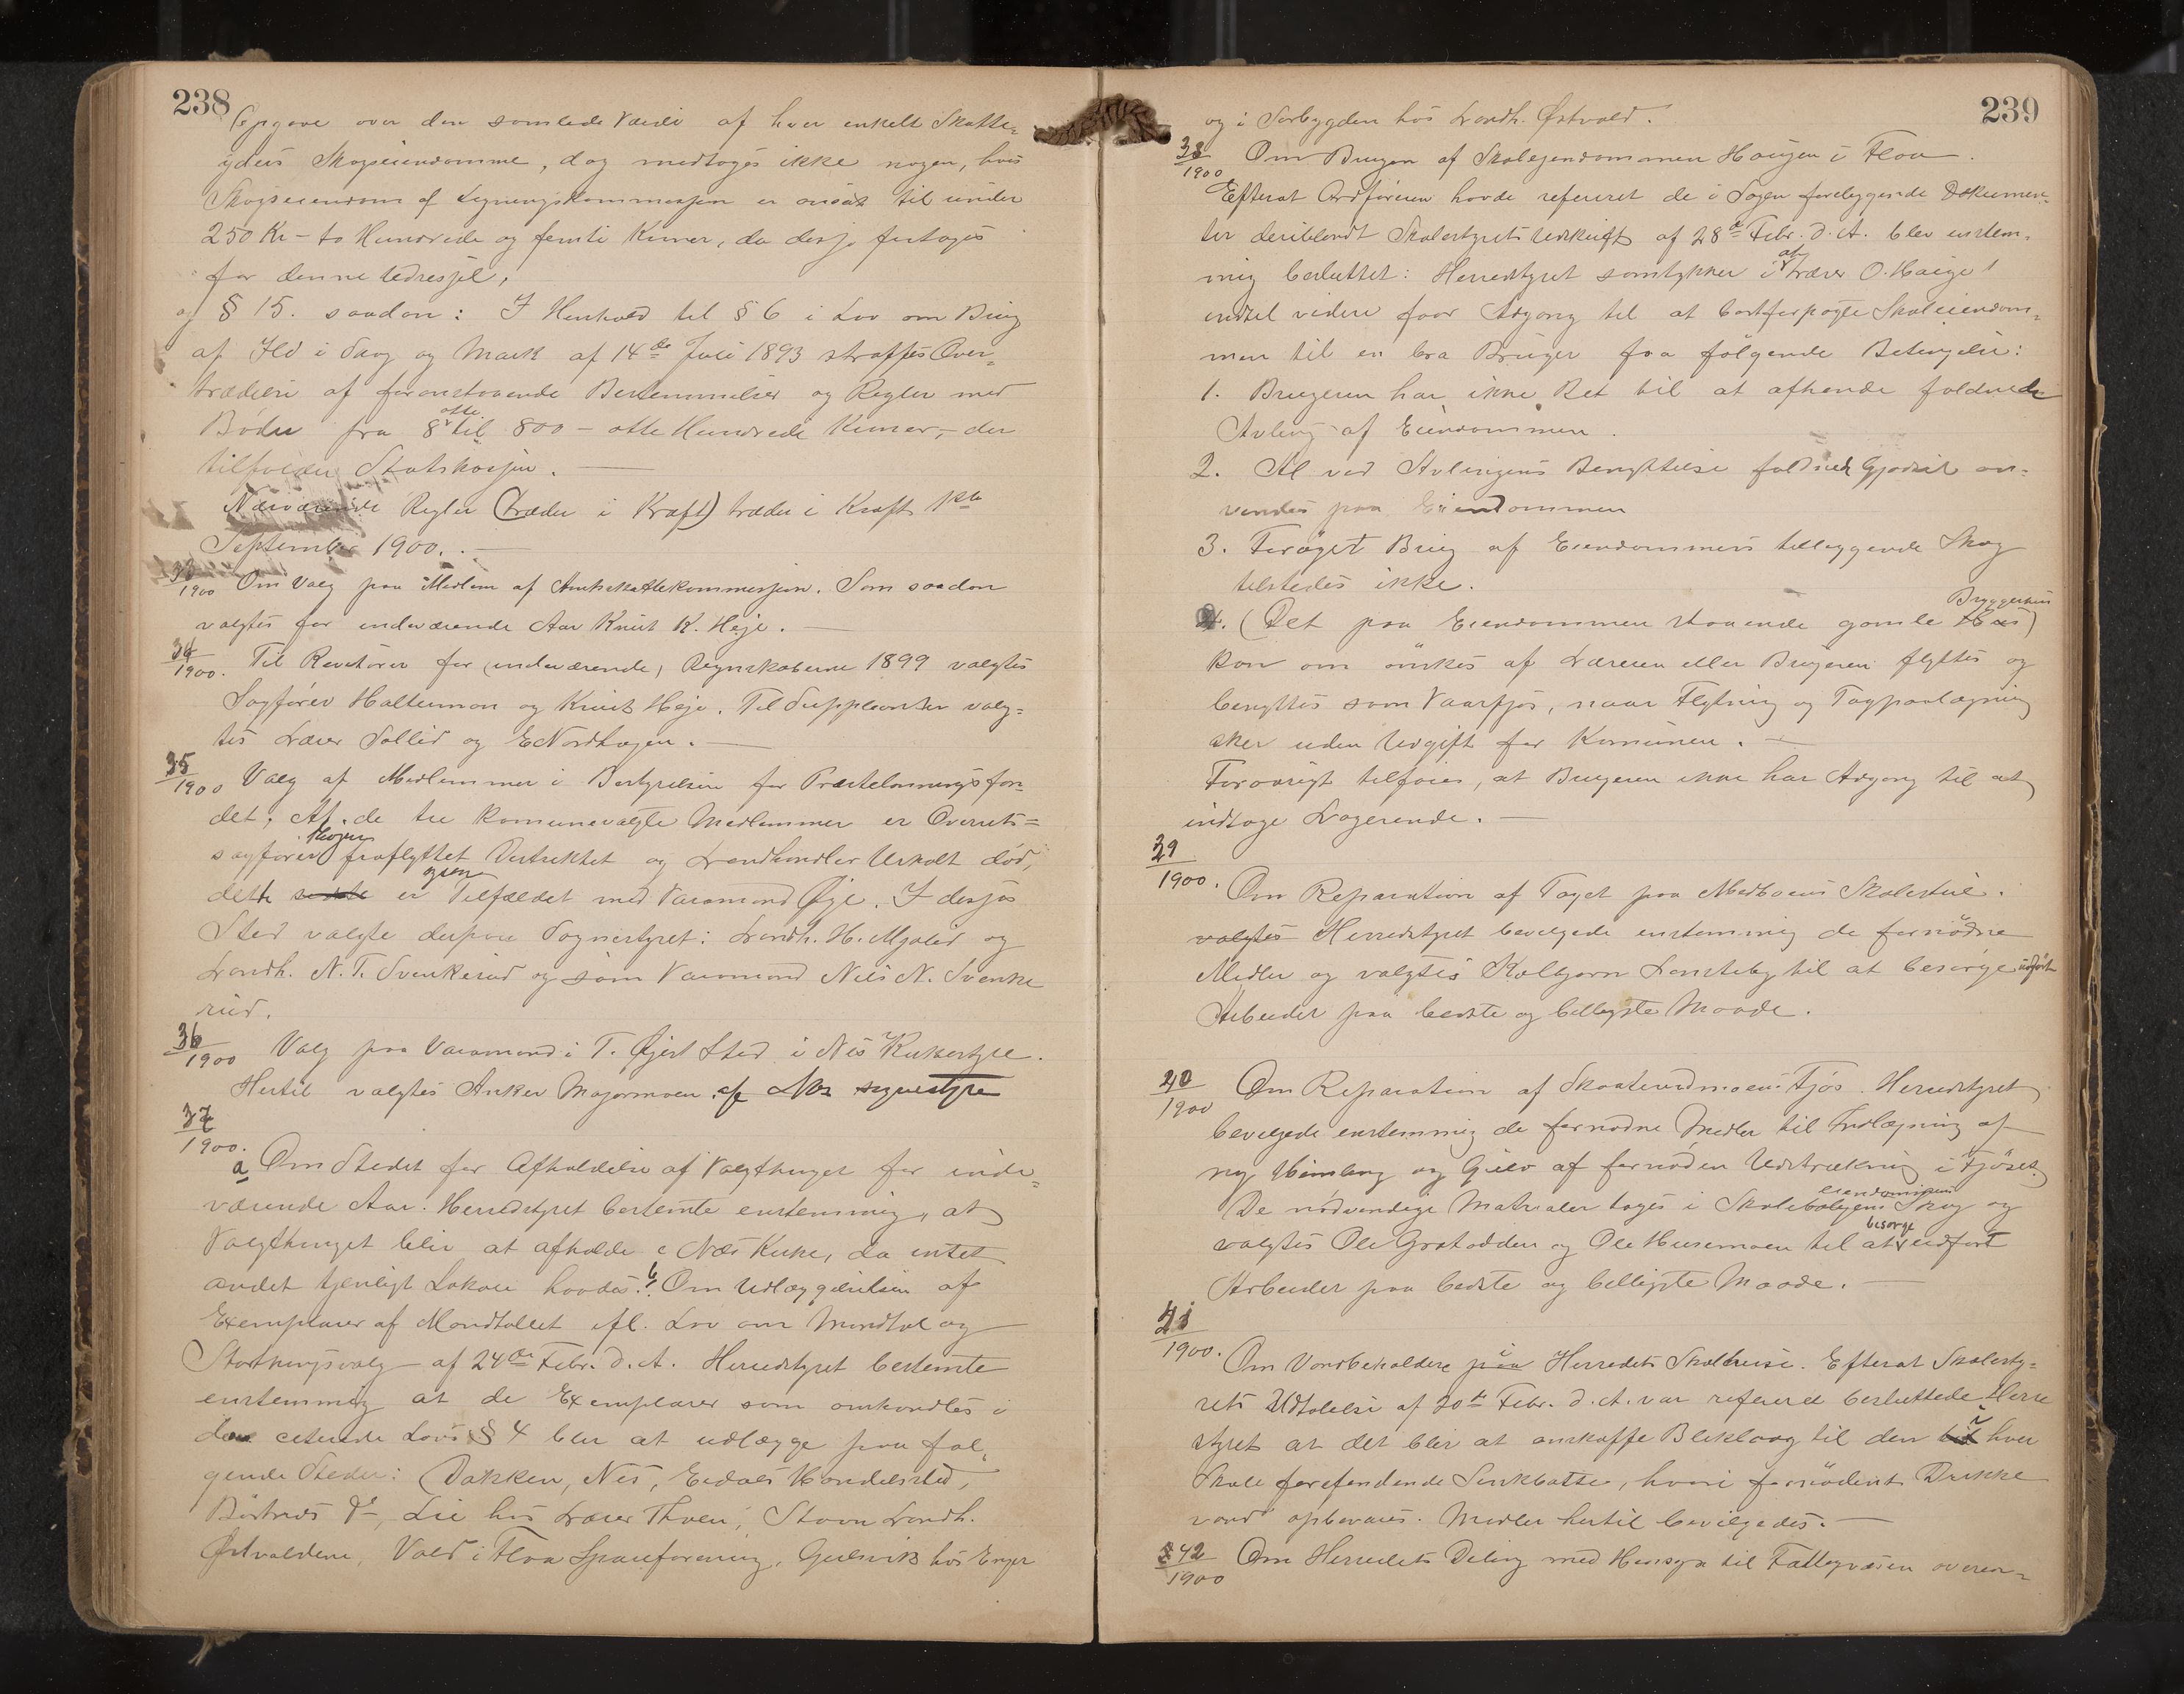 238
Opgave over den samlede Værdi af hver enkelt Skatte=
yders Skogeiendomme, dog medtages ikke nogen, hvis
Skogseiendom af Ligningskommissjon er ansat til under
250 Kr - to Hundrede og femti Kroner, da desse fritages
for denne Udredsel,
og § 15. saadan: I Henhold til § 6 i Lov om Brug
af Ild i Skog og Mark af 14de Juli 1893 straffes Over=
trædelse af foranstaaende Bestemmelser og Regler med
Bøder fra 8 otte til 800 - otte Hundrede Kroner, - der
tilfalder Statskassen. —
Nærværende Regler (træder i Kraft) træder i Kraft 1ste
September 1900. —
33/1900 Om Valg paa Medlem af Amtsskattekommissjon. Som saadan
valgtes for indeværende Aar Knut K. Heje. —
34/1900. Til Revisorer for (indeværende) Regnskaberne 1899 valgtes
Sagfører Haltermon og Knut Heje. Til Suppleanter valg=
tes Lærer Sollid og E Nordhagen. —
35/1900 Valg af Medlemmer i Bestyrelsen for Præstelønningsfon=
det. Af de tre komunevalgte Medlemmer er Overrets=
sagfører Thogersen fraflyttet Distriktet og Landhandler Uskolt død,
dette sidste er ogsaa Tilfældet med Varamand Øye. I desses
Sted valgte derpaa Sognestyret: Landh. H. Mjaled og
Landh. N. T. Svenkerud og som Varamand Nils N. Svenke
rud.
36/1900 Valg paa Varamand i T. Øjest Sted i Nes Kirkestyre.
Hertil valgtes Anker Majormoen af Nes sognestyre
37/1900.
a Om Stedet for Afholdelse af Valgthinget for inde=
værende Aar. Herredstyret bestemte enstemmig, at
Valgthinget bliv at afholde i Næs Kirke, da intet
andet tjenligt Lokale haves. b. Om Udlæggelsen af
Exemplarer af Mandtallet efl. Lov om Mandtal og
Storthingsvalg af 24de Febr. d. A. Herredstyret bestemte
enstemmig at de Exemplarer som omhandles i
den citerede Lovs § 4 bliv at udlægge paa føl=
gende Steder: Dokken, Nes, Eidals Handelssted,
Børtnes do, Lie hos Lærer Thoen, Stavn Landh.
Østvoldene, Vold i Flaa Spareforening, Gulsvik hos Enger
239
og i Sørbygden hos Landh. Østvold.
38/1900 Om Brugen af Skoleejendommen Haugen i Flaa.
Efterat Ordføreren havde refereret de i Sagen foreliggende Dokumen=
ter deriblandt Skolestyrets Udskrift af 28de Febr. d. A. blev enstem=
mig besluttet: Herredstyret samtykker i at Lærer O. Hauge
indtil videre faar Adgang til at bortforpagte Skoleeiendom=
men til en bra Bruger paa følgende Betingelser:
1. Brugeren har ikke Ret til at afhende faldende
Avling af Eiendommen.
2. Al ved Avlingens Benyttelse faldende Gjødsel an=
vendes paa Eiendommen
3. Foröget Brug af Eiendommens tilliggende Skog
tilstedes ikke.
4. (Det paa Eiendommen staaende gamle Hus) Bryggerhus
kan om ønskes af Læreren eller Brugeren flyttes og
benyttes som Vaarfjøs, naar Flytning og Tagpaalægning
sker uden Udgift for Komunen. —
Forøvrigt tilføies, at Brugeren ikke har Adgang til at
indtage Logerende. —
39/1900. Om Reparation af Taget paa Medboens Skolestue.
valgtes Herredstyret bevilgede enstemmig de fornødne
Midler og valgtes Kolbjørn Lonsteby til at besørge udført
Arbeidet paa bedste og billigste Maade.
40/1900 Om Reparation af Skaatrudmoens Fjøs. Herredstyret
bevilgede enstemmig de fornødne Midler til Indlægning af
ny Himling og Gulv af fornøden Udstrækning i Fjøset.
De nødvendige Materialer tages i Skoleboligens eiendommens Skog og
valgtes Ole Grotodden og Ole Husemoen til at besørge udført
Arbeidet paa bedste og billigste Maade. —
41/1900. Om Vandbeholdere paa i Herredets Skolehuse. Efterat Skolesty=
rets Udtalelse af 20de Febr. d. A. var refereret besluttede Herre
styret at det blir at anskaffe Bliklaag til den til i hver
Skole forefindende Sinkbøtte, hvori fornødent Drikke
vand opbevares. Midler hertil bevilgedes. —
42/1900 Om Herredets Deling med Hensyn til Fattigvæsen overen=